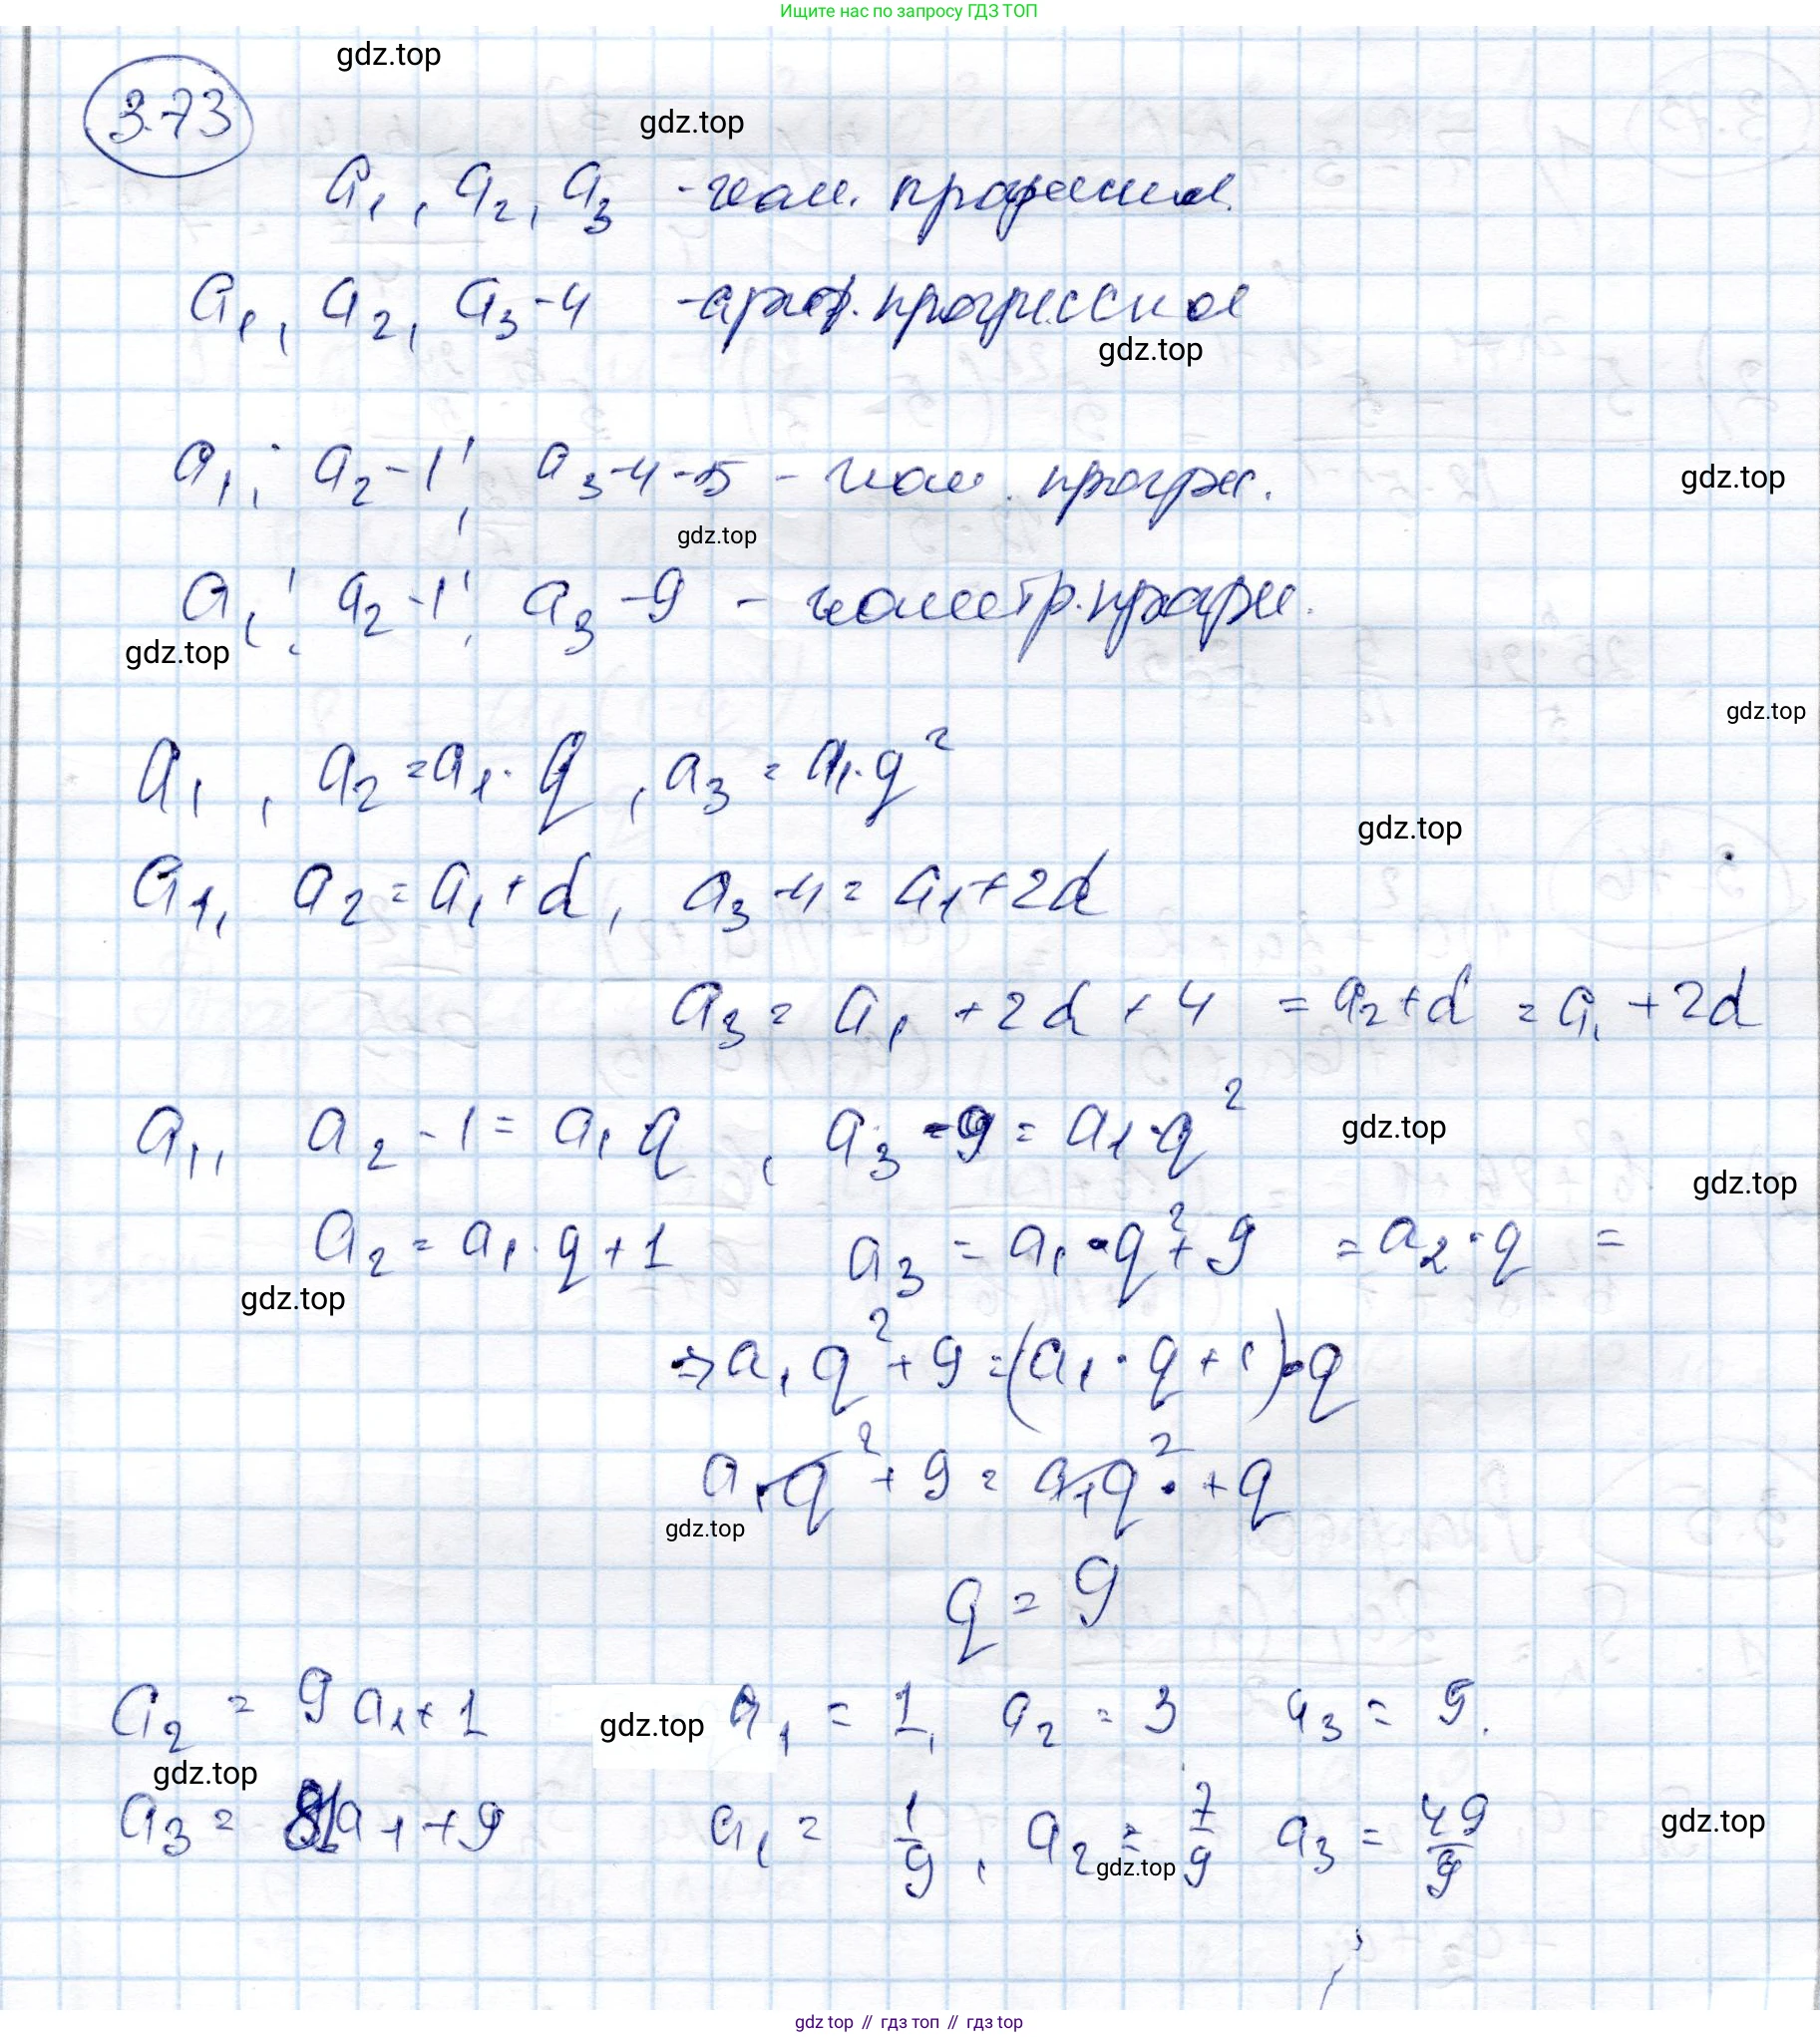 Ищите нас по запросу ГДЗ ТОП
gdz.top
3.73
gdz.top
a₁, a₂, a₃ - геом. прогрессия.
a₁, a₂, a₃-4 - ариф. прогрессия
gdz.top
a₁; a₂-1; a₃-4-5 - геом. прогрес.
gdz.top
gdz.top
a₁; a₂-1; a₃-9 - геометр. прогрес.
gdz.top
gdz.top
a₁, a₂=a₁·q, a₃=a₁·q²
gdz.top
a₁, a₂=a₁+d, a₃-4=a₁+2d
a₃=a₁+2d+4=a₂+d=a₁+2d
a₁, a₂-1=a₁q, a₃-9=a₁·q²
gdz.top
gdz.top
a₂=a₁·q+1 a₃=a₁·q²+9=a₂·q=
gdz.top
⇒a₁q²+9=(a₁·q+1)·q
a₁·q²+9=a₁q²·+q
gdz.top
q=9
a₂=9a₁+1 gdz.top a₁=1, a₂=3 a₃=9.
gdz.top
a₃=81a₁+9 a₁=1/9, a₂=7/9 a₃=49/9
gdz.top
gdz.top
gdz top // гдз топ // гдз top